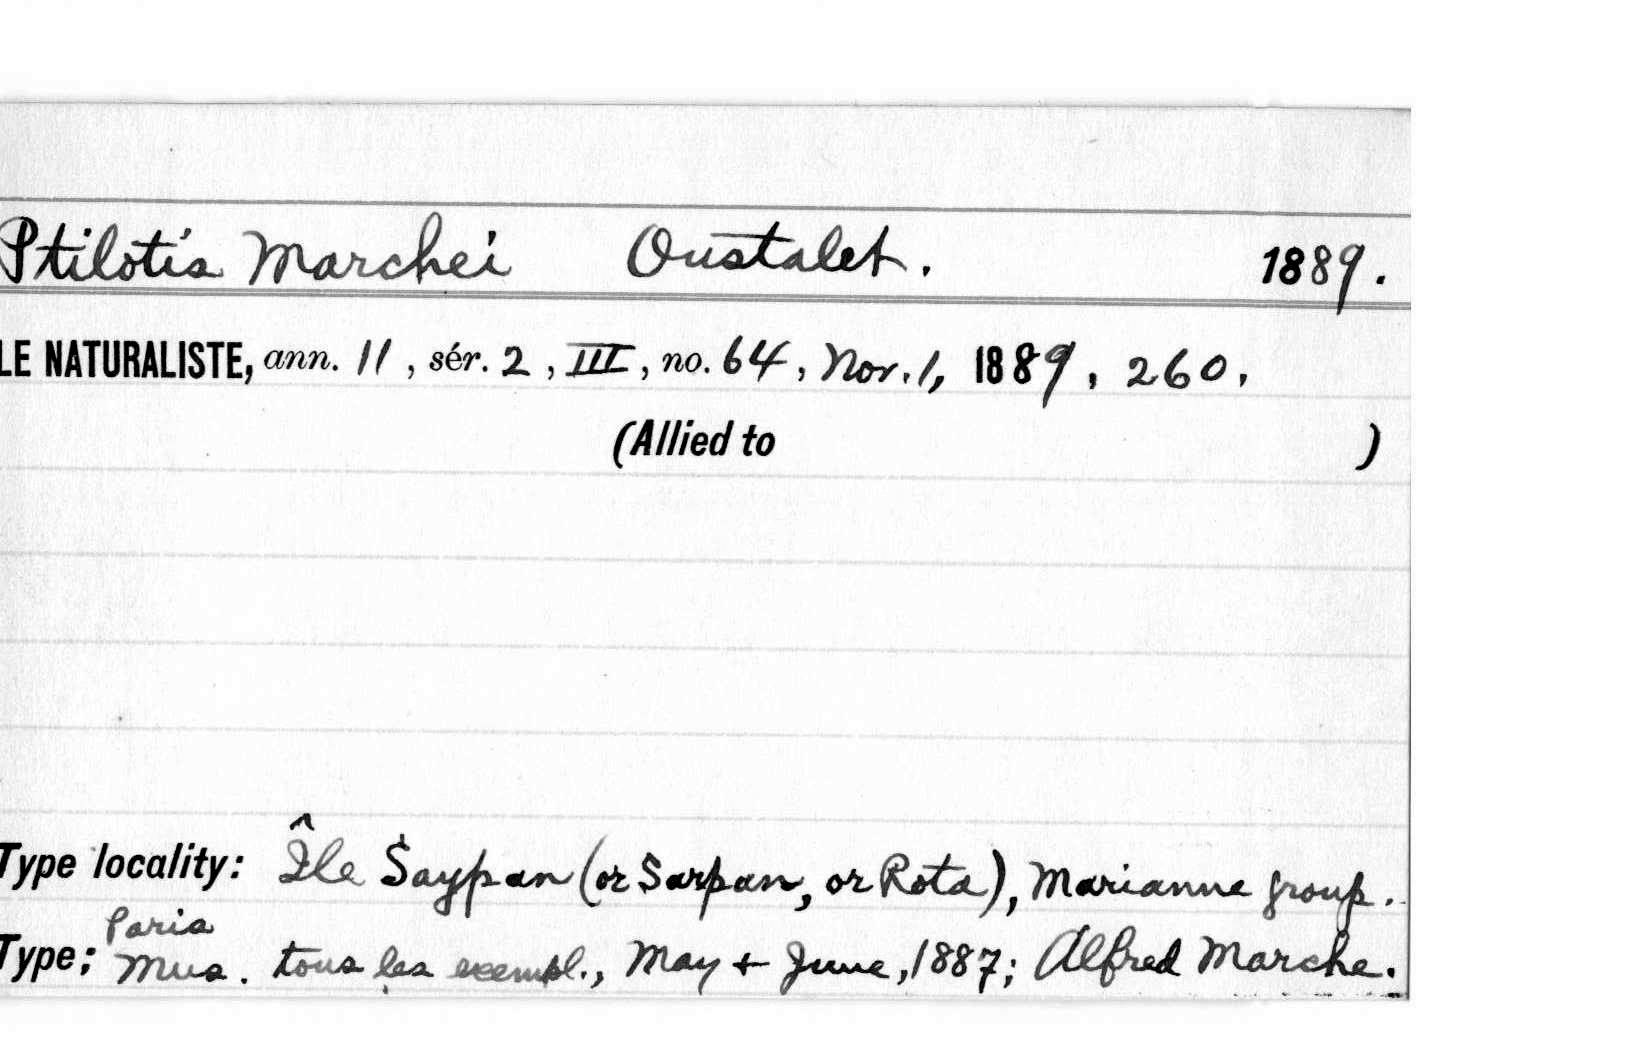 Ptilotis Marchei Oustalet. 1889.
LE NATURALISTE, ann. 11, sér. 2, III, no. 64, Nov. 1, 1889, 260.
(Allied to )
Type locality: Île Saypan (or Sarpan, or Rota), Marianne group.
Paris
Type; Mus. tous les exempl., May + June, 1887; Alfred Marche.